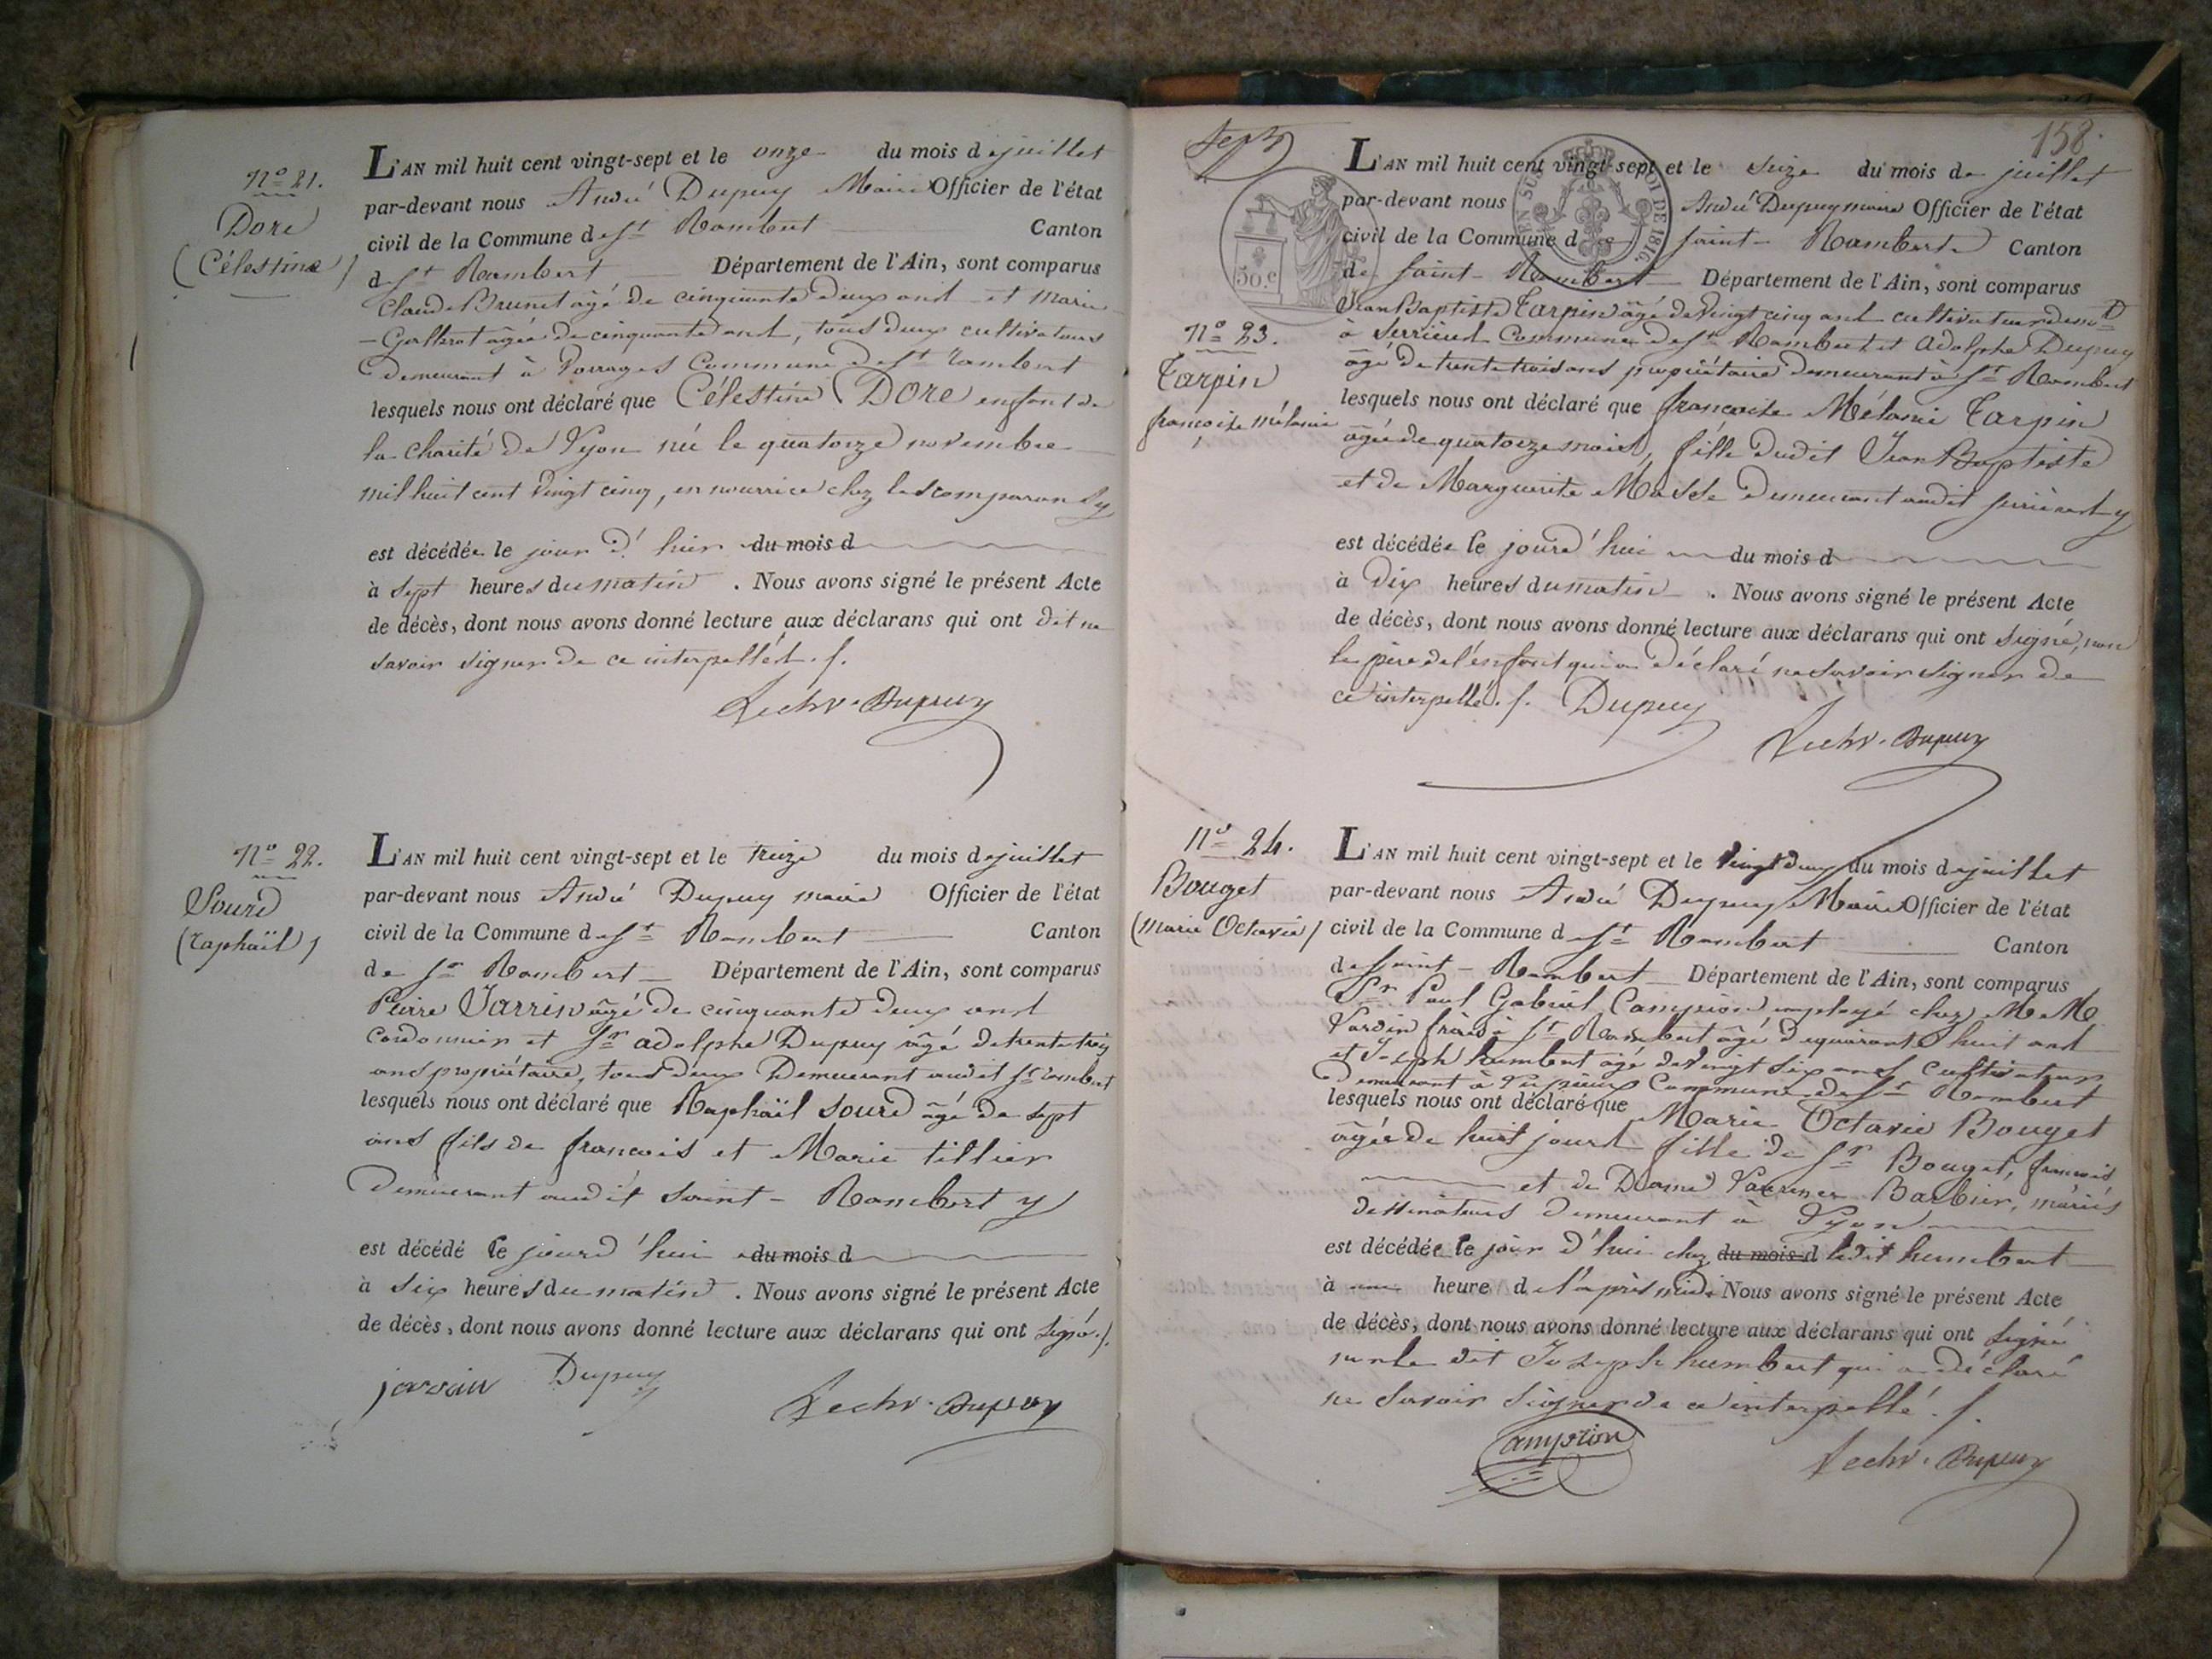 N° 21.
Dore
(Célestine)
L'AN mil huit cent vingt-sept et le onze du mois de juillet
par-devant nous André Dupuy Maire Officier de l'état
civil de la Commune de St Rambert Canton
de St Rambert Département de l'Ain, sont comparus
Claude Brunet âgé de cinquante deux ans et Marie
âgée de cinquante ans, tous deux cultivateurs
demeurant à Commune de St rambert
lesquels nous ont déclaré que Célestine DORE enfant de
la charité de Lyon né le quatorze novembre
mil huit cent vingt cinq, en nourrice chez les comparans y
est décédée le jour d'hier du mois d
à sept heures du matin . Nous avons signé le présent Acte
de décès, dont nous avons donné lecture aux déclarans qui ont dit ne
savoir signer de ce interpellés ./.
Lechr. Dupuy
N° 22.
Sourd
(raphaïl)
L'AN mil huit cent vingt-sept et le treize du mois de juillet
par-devant nous André Dupuy maire Officier de l'état
civil de la Commune de St Rambert Canton
de St Rambert Département de l'Ain, sont comparus
Pierre Jarrin âgé de cinquante deux ans
cordonnier et Sr adolphe Dupuy âgé de trente trois
ans propriétaire, tous deux Demeurant audit St rambert
lesquels nous ont déclaré que Raphaïl Sourd âgé de sept
ans fils de francois et Marie tillier
Demeurant audit Saint-Rambert y
est décédé le jourd'hui du mois d
à six heures du matin . Nous avons signé le présent Acte
de décès, dont nous avons donné lecture aux déclarans qui ont signé ./.
jarrin Dupuy
Lechr. Dupuy
158.
Sept
50 c
LOI DE 1816.
N° 23.
Tarpin
françoise mélanie
L'AN mil huit cent vingt-sept et le seize du mois de juillet
par-devant nous André Dupuy maire Officier de l'état
civil de la Commune de Saint-Rambert Canton
de Saint-Rambert Département de l'Ain, sont comparus
Jean Baptiste Tarpin âgé de vingt cinq ans cultivateur demt
à Serrières Commune de St Rambert et Adolphe Dupuy
âgé de trente trois ans propriétaire demeurant à St Rambert
lesquels nous ont déclaré que françoise Mélanie Tarpin
âgée de quatorze mois, fille dudit Jean Baptiste
et de Marguerite Demeurant audit y
est décédée le jourd'hui du mois d
à Dix heures du matin . Nous avons signé le présent Acte
de décès, dont nous avons donné lecture aux déclarans qui ont signé, non
le père de l'enfant qui a déclaré ne savoir signer de
ce interpellé ./. Dupuy
Lechr. Dupuy
N° 24.
Bouget
(marie Octavie)
L'AN mil huit cent vingt-sept et le vingt deux du mois de juillet
par-devant nous André Dupuy Maire Officier de l'état
civil de la Commune de St Rambert Canton
de Saint-Rambert Département de l'Ain, sont comparus
Sr Paul Gabriel Campion employé chez M.M.
frères à St Rambert âgé de quarante huit ans
et Joseph humbert âgé de vingt six ans Cultivateur
demeurant à Commune de St Rambert
lesquels nous ont déclaré que Marie Octavie Bouget
âgée de huit jours fille de Sr Bouget, françois
et de Dame Barbier, mariés
dessinateurs demeurant à Lyon
est décédée le jour d'hui chez du mois d ledit humbert
à une heure de l'après midi. Nous avons signé le présent Acte
de décès, dont nous avons donné lecture aux déclarans qui ont signé
dit Joseph humbert qui a déclaré
ne savoir signer de ce interpellé ./.
Campion
Lechr. Dupuy